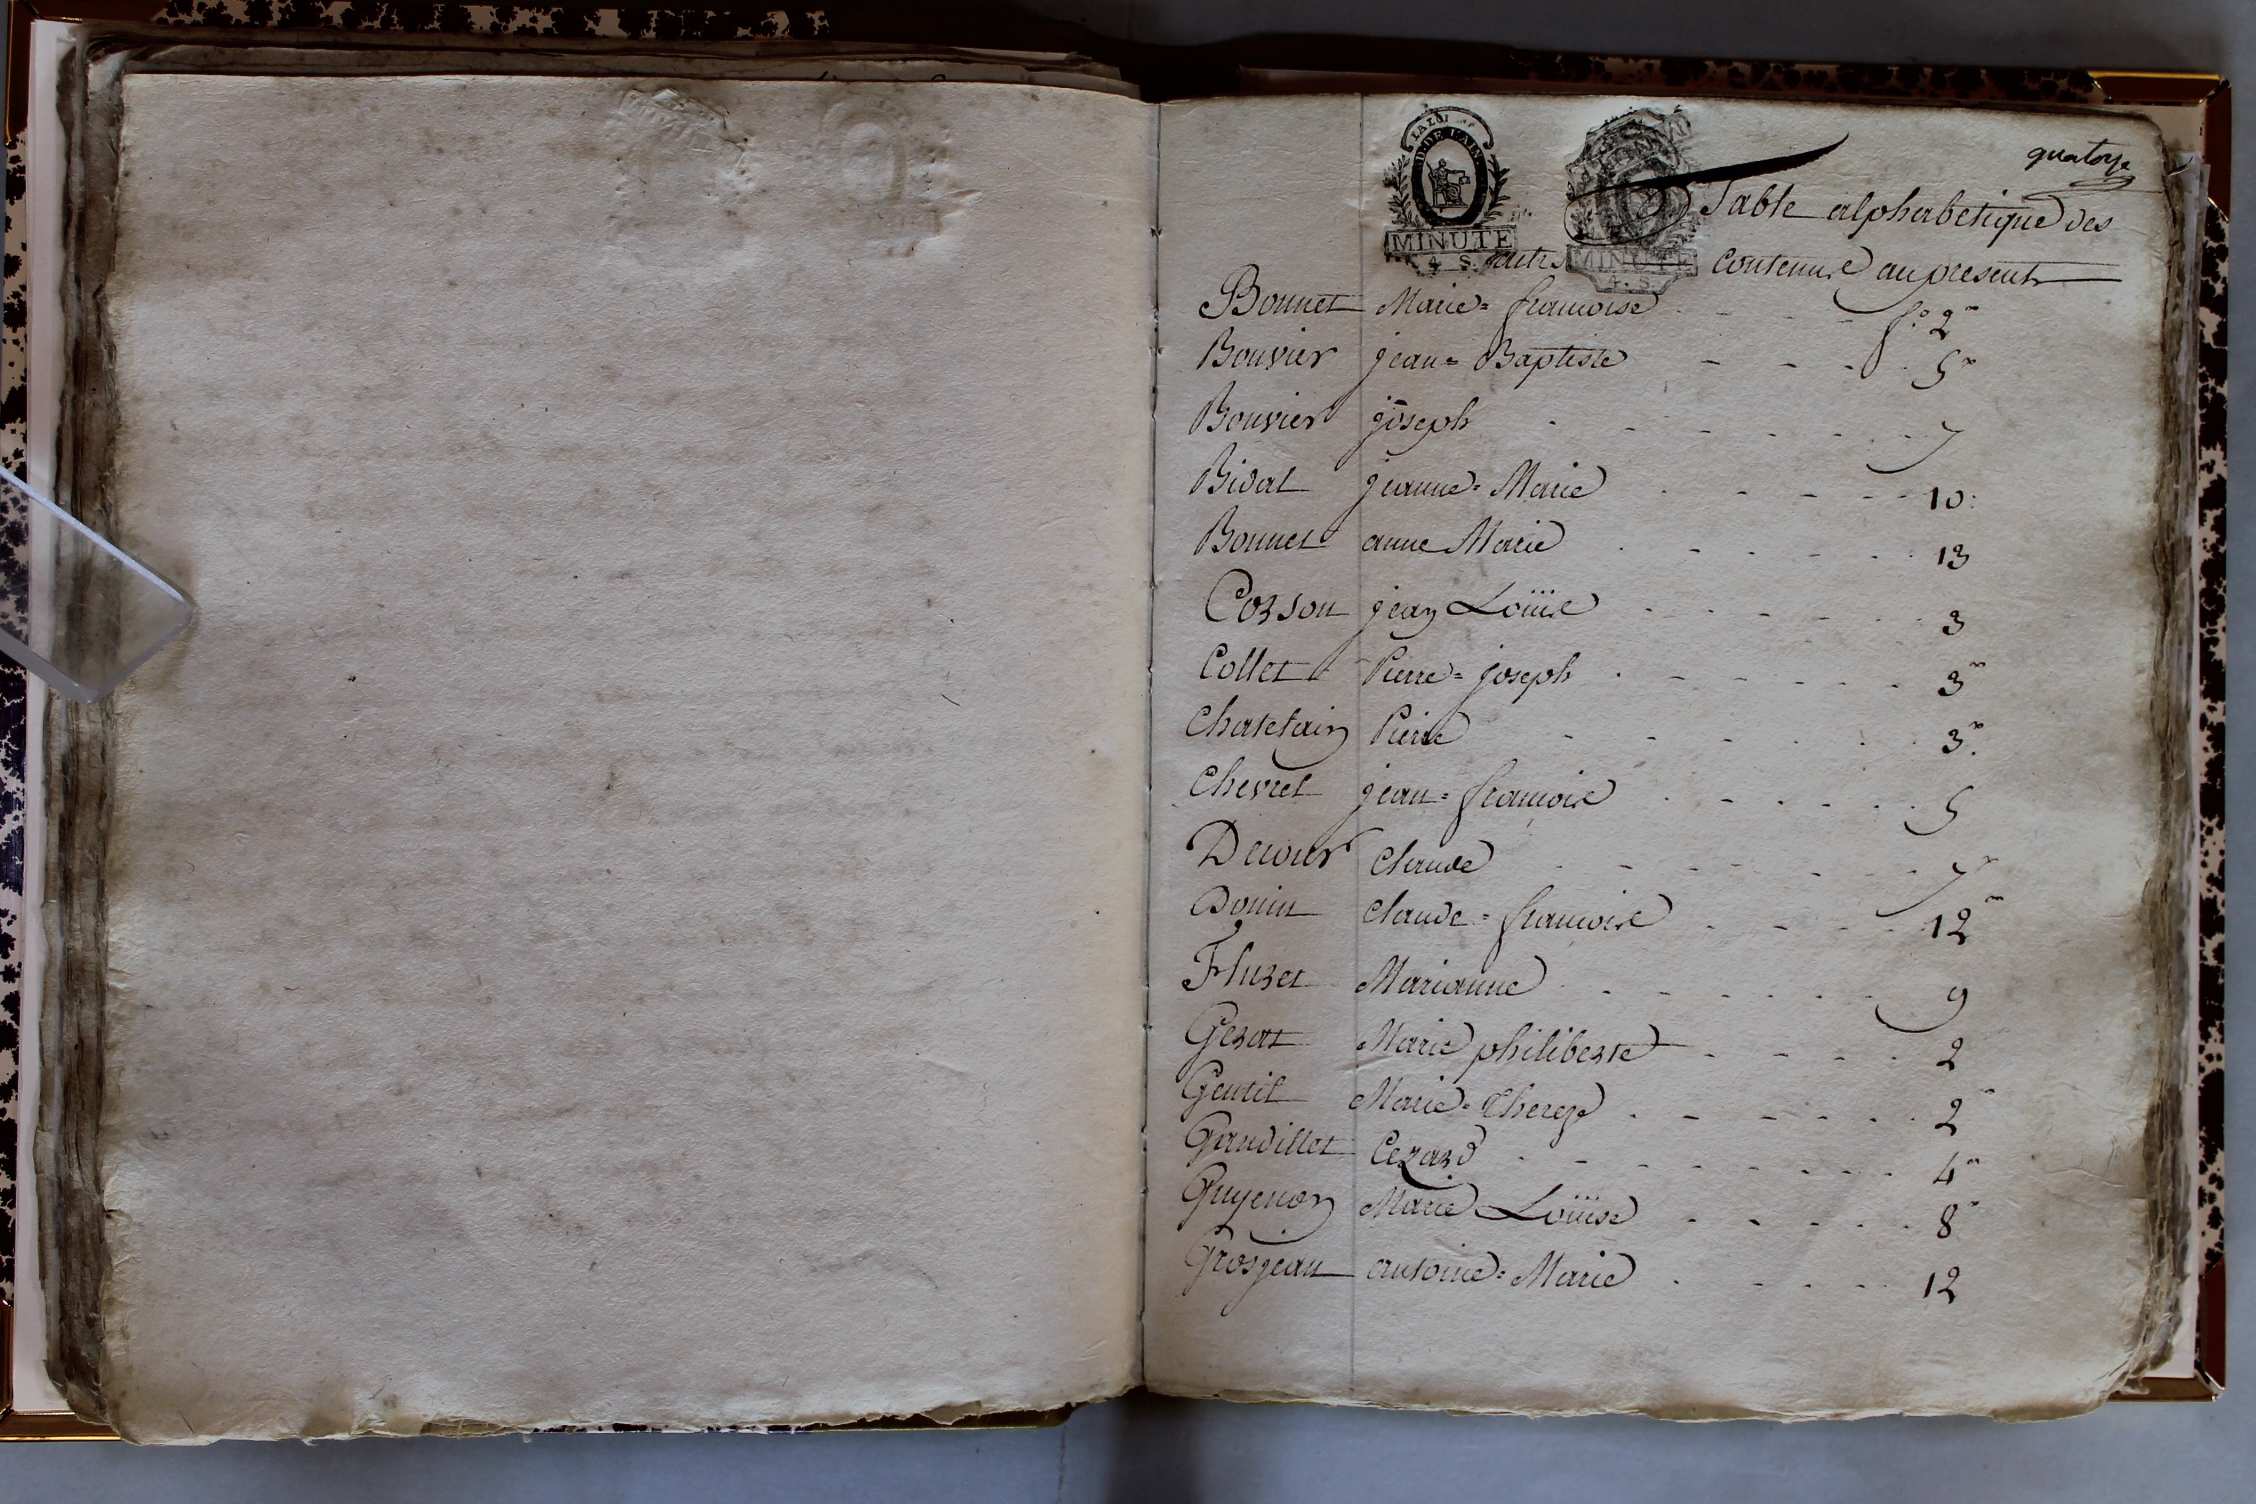 quatorze
LA LOI
D. DE L'AIN.
MINUTE
4. S.
MINUTE
4. S.
Table alphabetique des
actes contenus au present
Bonnet Marie=francoise f.o 2
Bouvier jean=Baptiste 5
Bouvier joseph 7
Bidat jeanne=Marie 10
Bonnet anne Marie 13
Corson jean Louis 3
Collet Pierre=joseph 3
Chatelain Pierre 3
Chevret jean=francois 5
Decour Claude 7
Donin Claude=francois 12
Fluret Marianne 9
Gerat Marie philiberte 2
Gentil Marie=Thereze 2
Gaudillet Cezard 4
Guyenon Marie Louise 8
Grosjean antoine=Marie 12